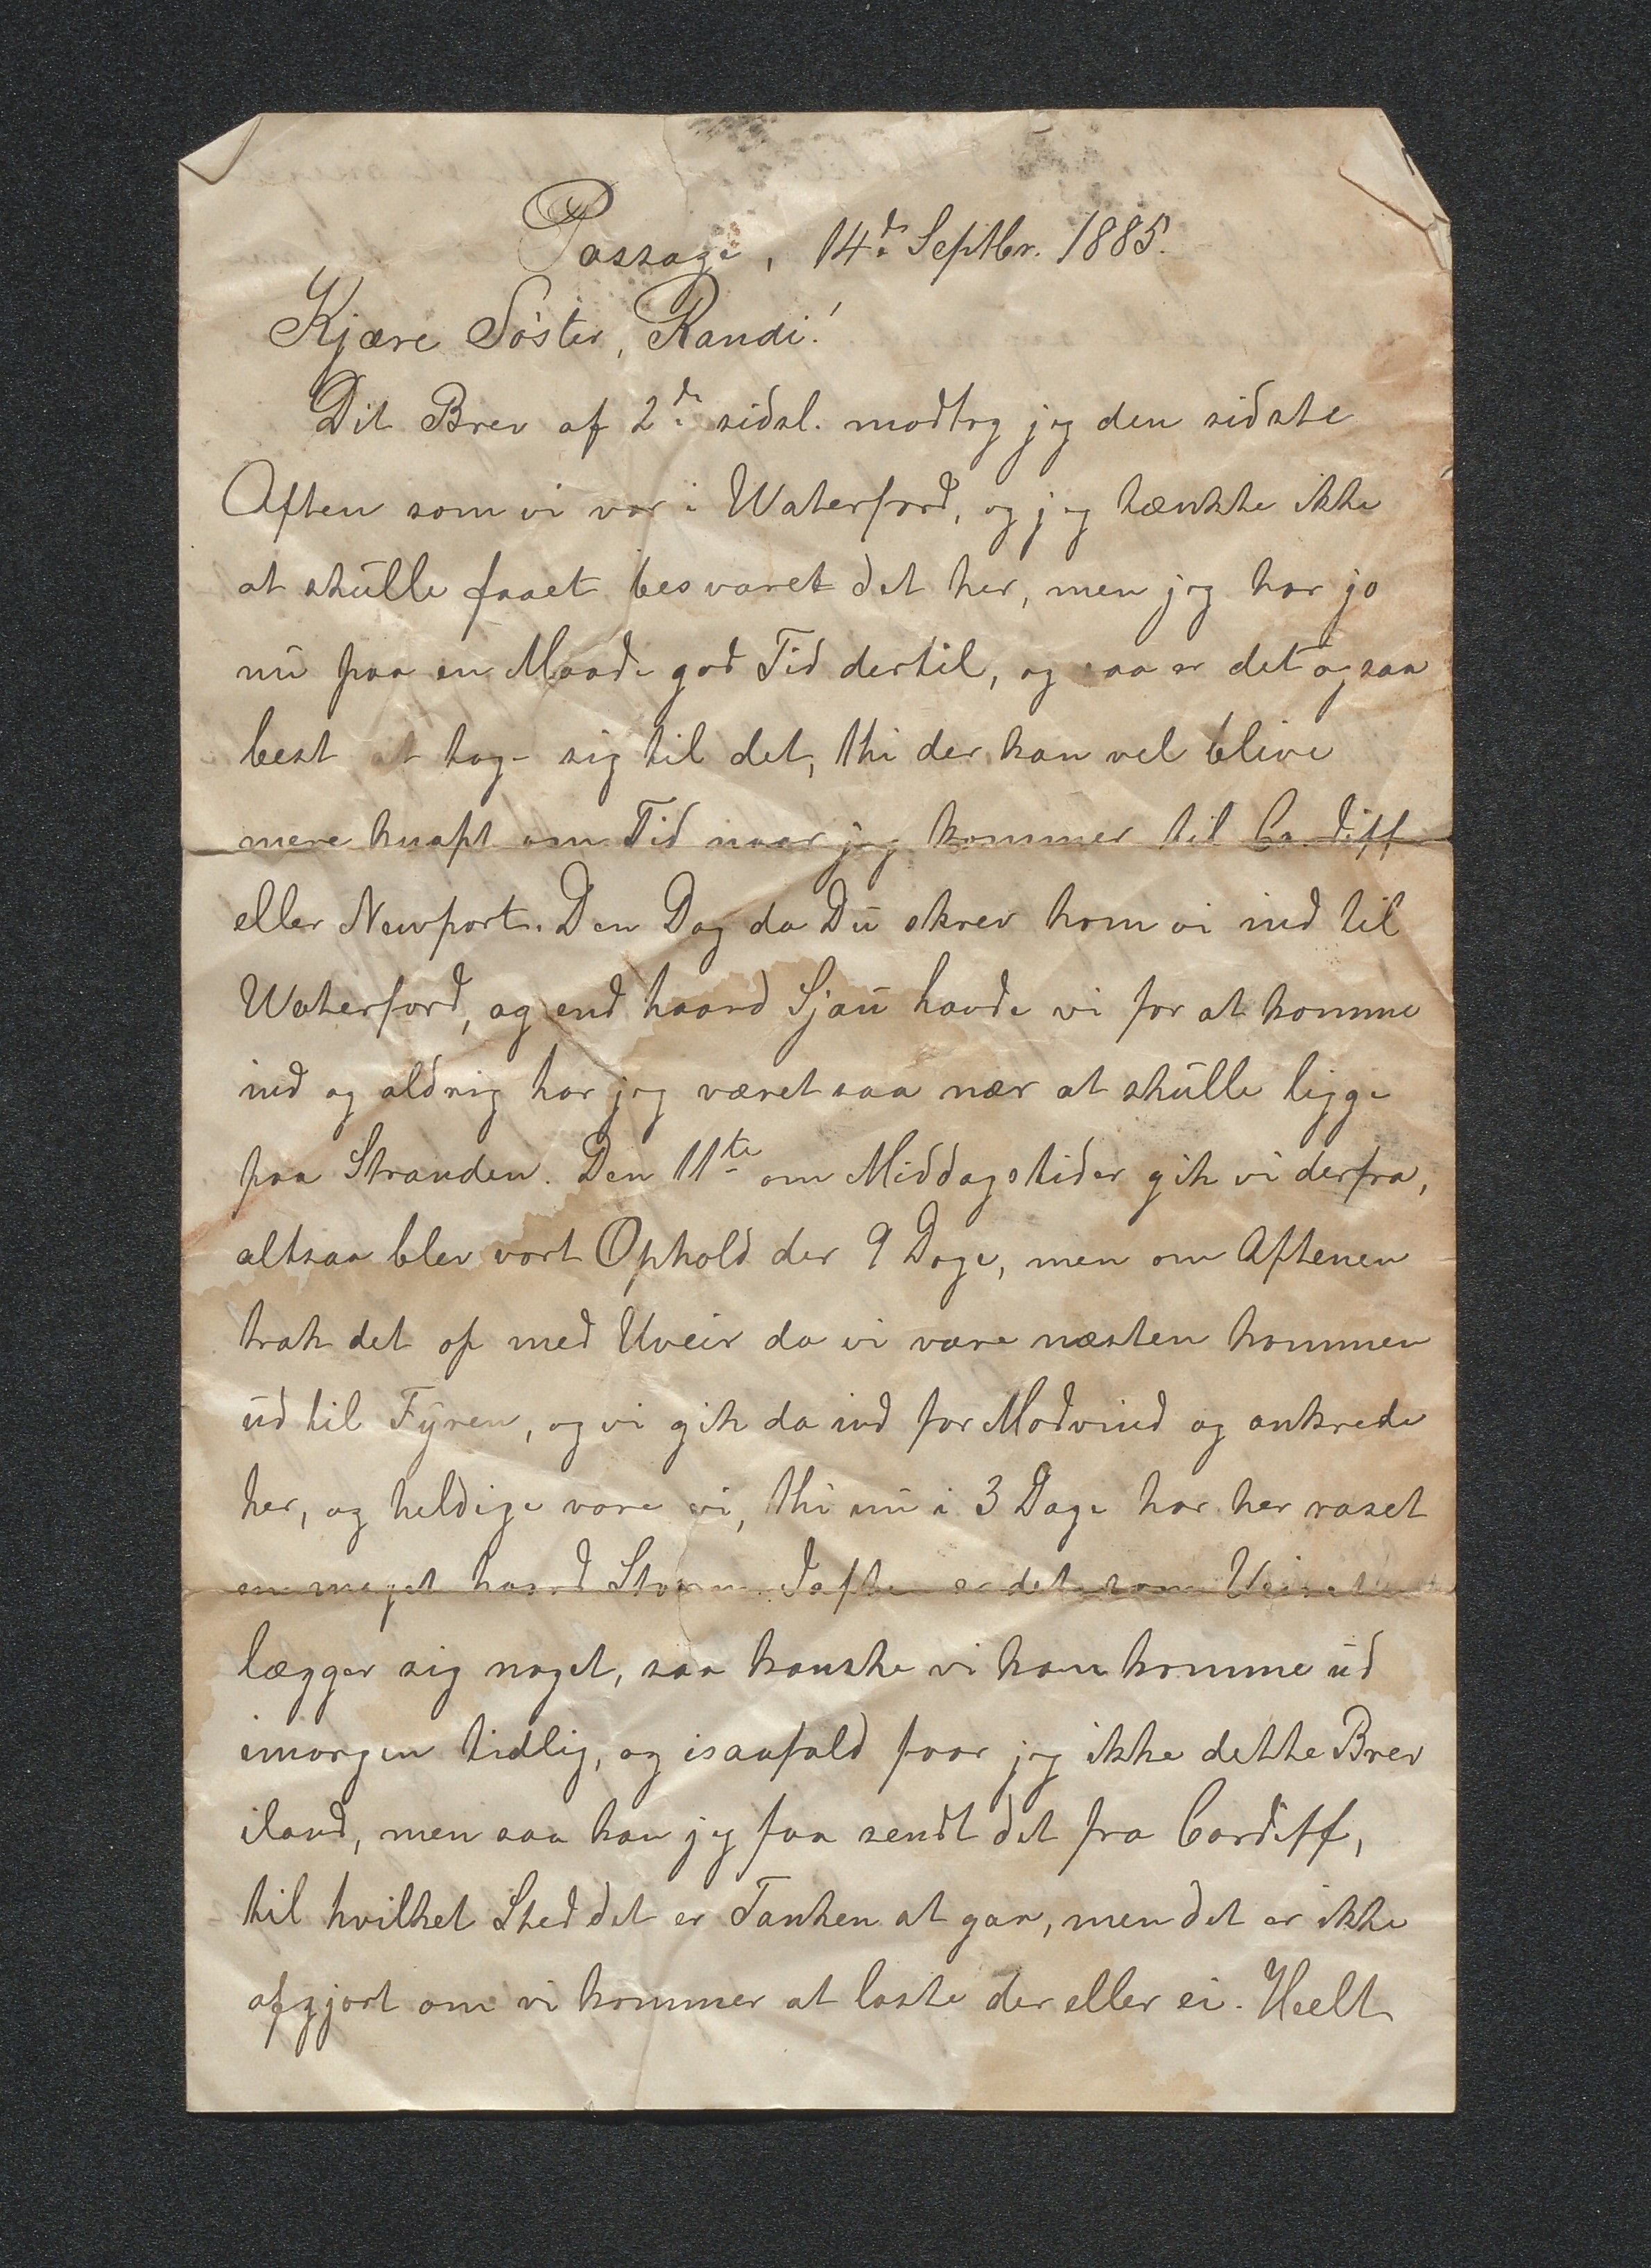 Passage, 14de Septbr. 1885.
Kjære Søster, Randi!
Dit Brev af 2de sidsl. modtog jeg den sidste
Aften som vi var i Waterford, og jeg tænkte ikke
at skulle faaet besvaret det her, men jeg har jo
nu paa en Maade god Tid dertil, og saa er det ogsaa
best at tage sig til det, thi der kan vel blive
mere knapt om Tid naar jeg kommer til Cardiff
eller Newport. Den Dag da Du skrev kom vi ind til
Waterford, og end haard Sjau havde vi for at komme
ind og aldrig har jeg været saa nær at skulle ligge
paa Stranden. Den 11te om Middagstider gik vi derfra,
altsaa blev vort Ophold der 9 Dage, men om Aftenen
trak det op med Uveir da vi vare næsten kommen
ud til Fyren, og vi gik da ind for Modvind og ankrede
her, og heldige vare vi, thi nu i 3 Dage har her raset
en meget haard Storm. Iaften er det som Veiret
lægger sig noget, saa kanske vi kan komme ud
imorgen tidlig, og isaafald faar jeg ikke dette Brev
iland, men saa kan jeg faa sendt det fra Cardiff,
til hvilket Sted det er Tanken at gaa, men det er ikke
afgjort om vi kommer at laste der eller ei. Heelt